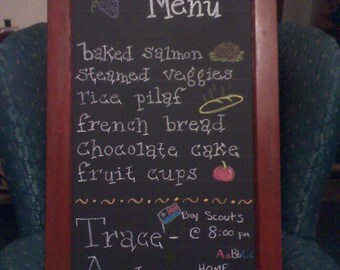 Menu
baked salmon
steamed veggies
rice pilaf
french bread
chocolate cake
fruit cups
Trace - Boy Scouts
@ 8:00 pm
AaBbCc
HOME